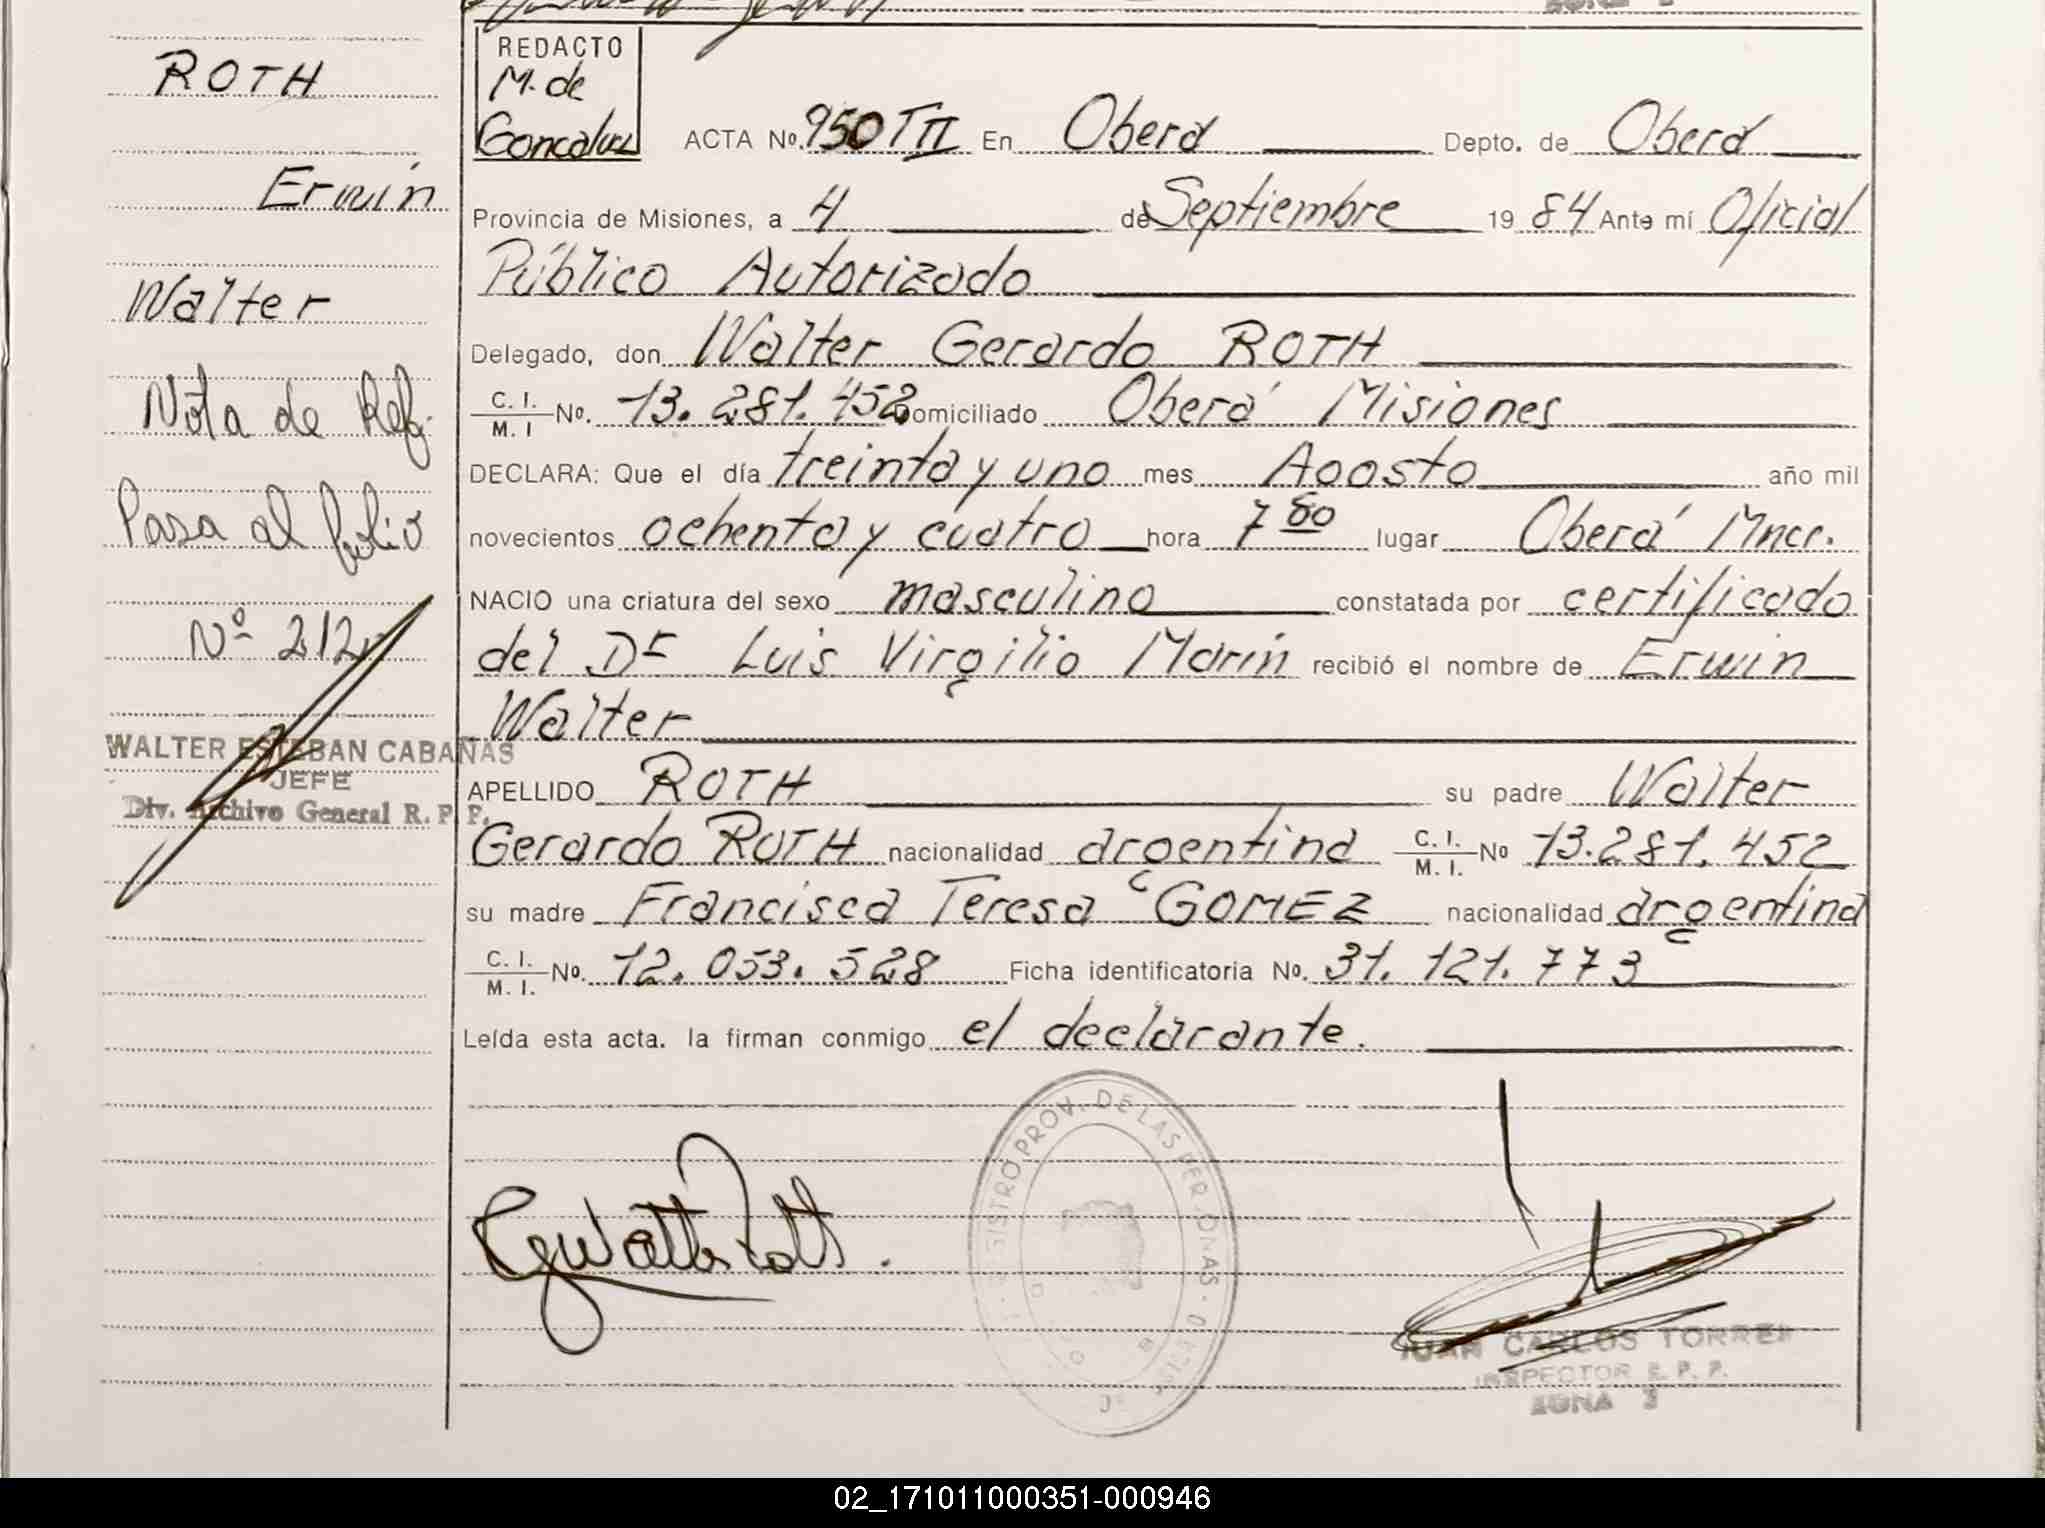 ROTH
Erwin
Walter
Nota de Ref.
Pasa al folio
Nº 212
WALTER ESTEBAN CABAÑAS
JEFE
Div. Archivo General R. P. P.
REDACTO
M. de
Goncalvez
ACTA Nº. 950 TII En Oberá Depto. de Oberá
Provincia de Misiones, a 4 de Septiembre 19 84 Ante mí Oficial
Público Autorizado
Delegado, don Walter Gerardo ROTH
C. I. M. I Nº. 13.281.452 Domiciliado Oberá Misiones
DECLARA: Que el día treinta y uno mes Agosto año mil
novecientos ochenta y cuatro hora 7 lugar Oberá Mncs.
NACIO una criatura del sexo masculino constatada por certificado
del Dr Luis Virgilio Marín recibió el nombre de Erwin
Walter
APELLIDO ROTH su padre Walter
Gerardo ROTH nacionalidad argentina C. I. M. I. Nº 13.281.452
su madre Francisca Teresa GOMEZ nacionalidad argentina
C. I. M. I. Nº. 12.053.528 Ficha identificatoria Nº. 31.121.773
Leída esta acta. la firman conmigo el declarante.
REGISTRO PROV. DE LAS PERSONAS
JUAN CARLOS TORRES
INSPECTOR R. P. P.
ZONA 3
02_171011000351-000946